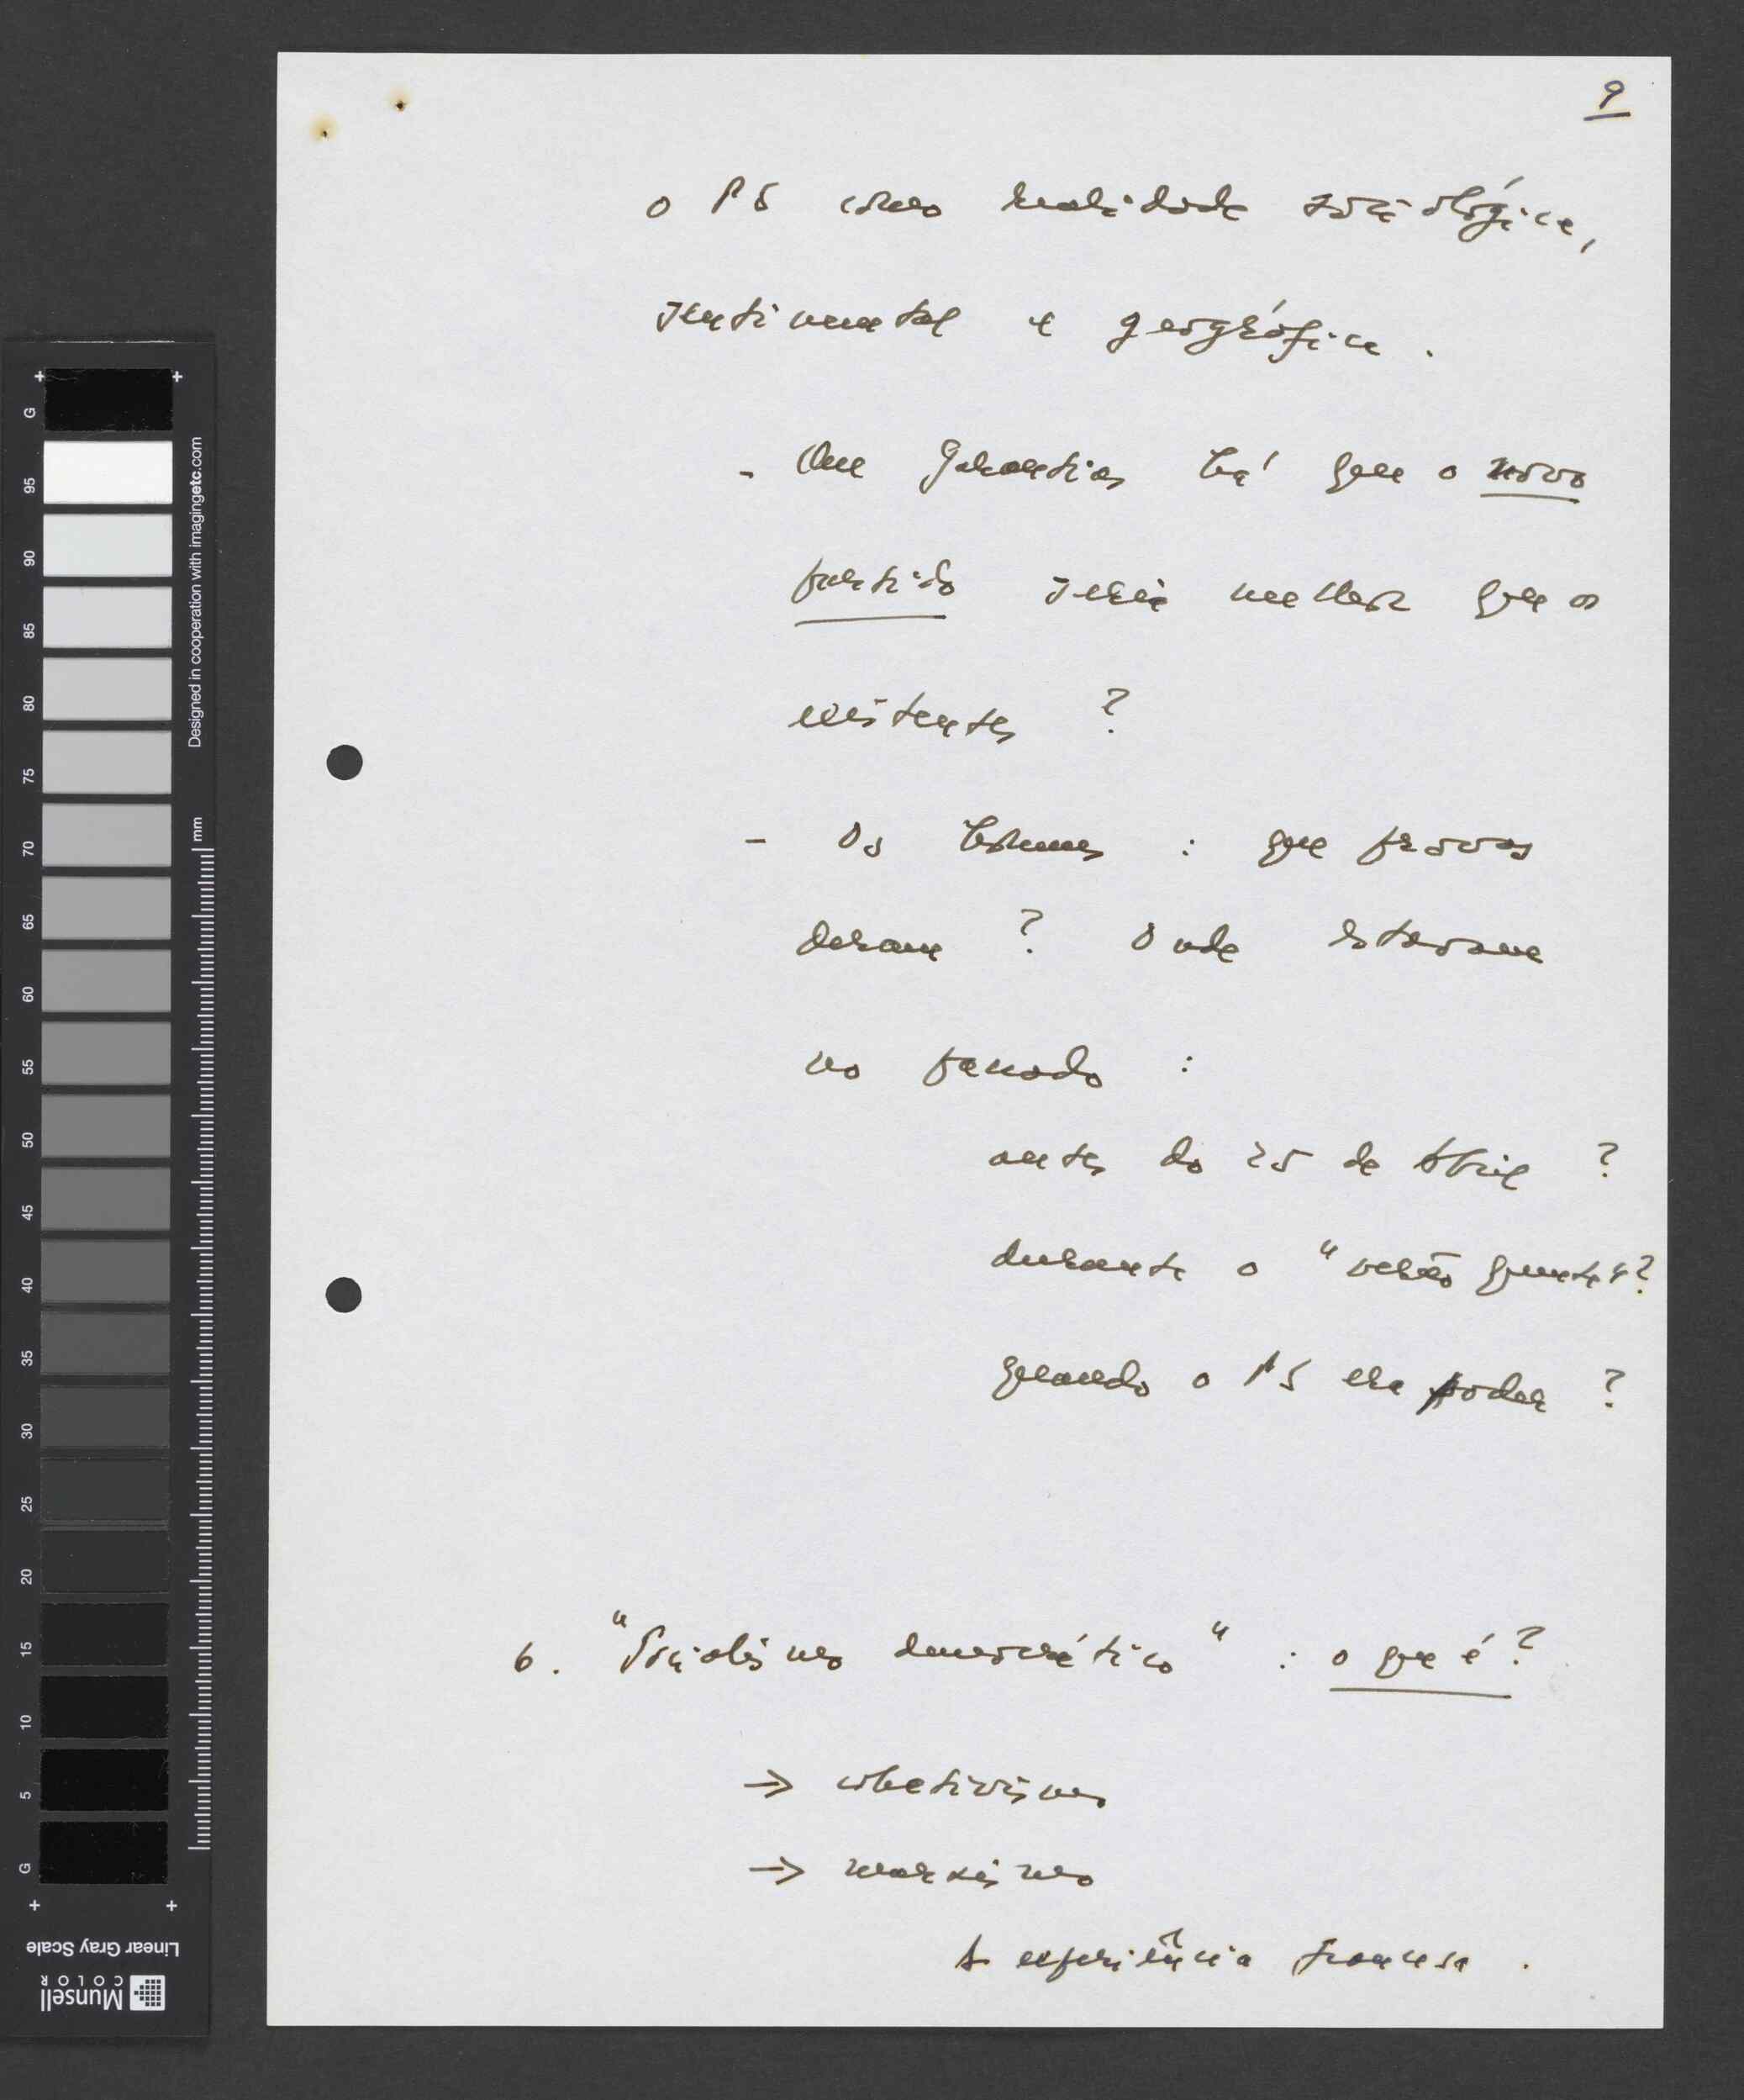 9
o PS como realidade sociológica,
sentimental e geográfica.
- Que garantias há que o novo
partido seria melhor que os
existentes ?
- Os homens : que provas
deram ? Onde estavam
no passado :
antes do 25 de Abril ?
durante o "verão quente"?
quando o PS era poder ?
6. "Socialismo democrático" : o que é ?
→ coletivismo
→ marxismo
A experiência francesa .
G
95
90
85
80
75
70
65
60
55
50
45
40
35
30
25
20
15
10
5
G
Designed in cooperation with imagingetc.com
mm
Linear Gray Scale
Munsell
COLOR